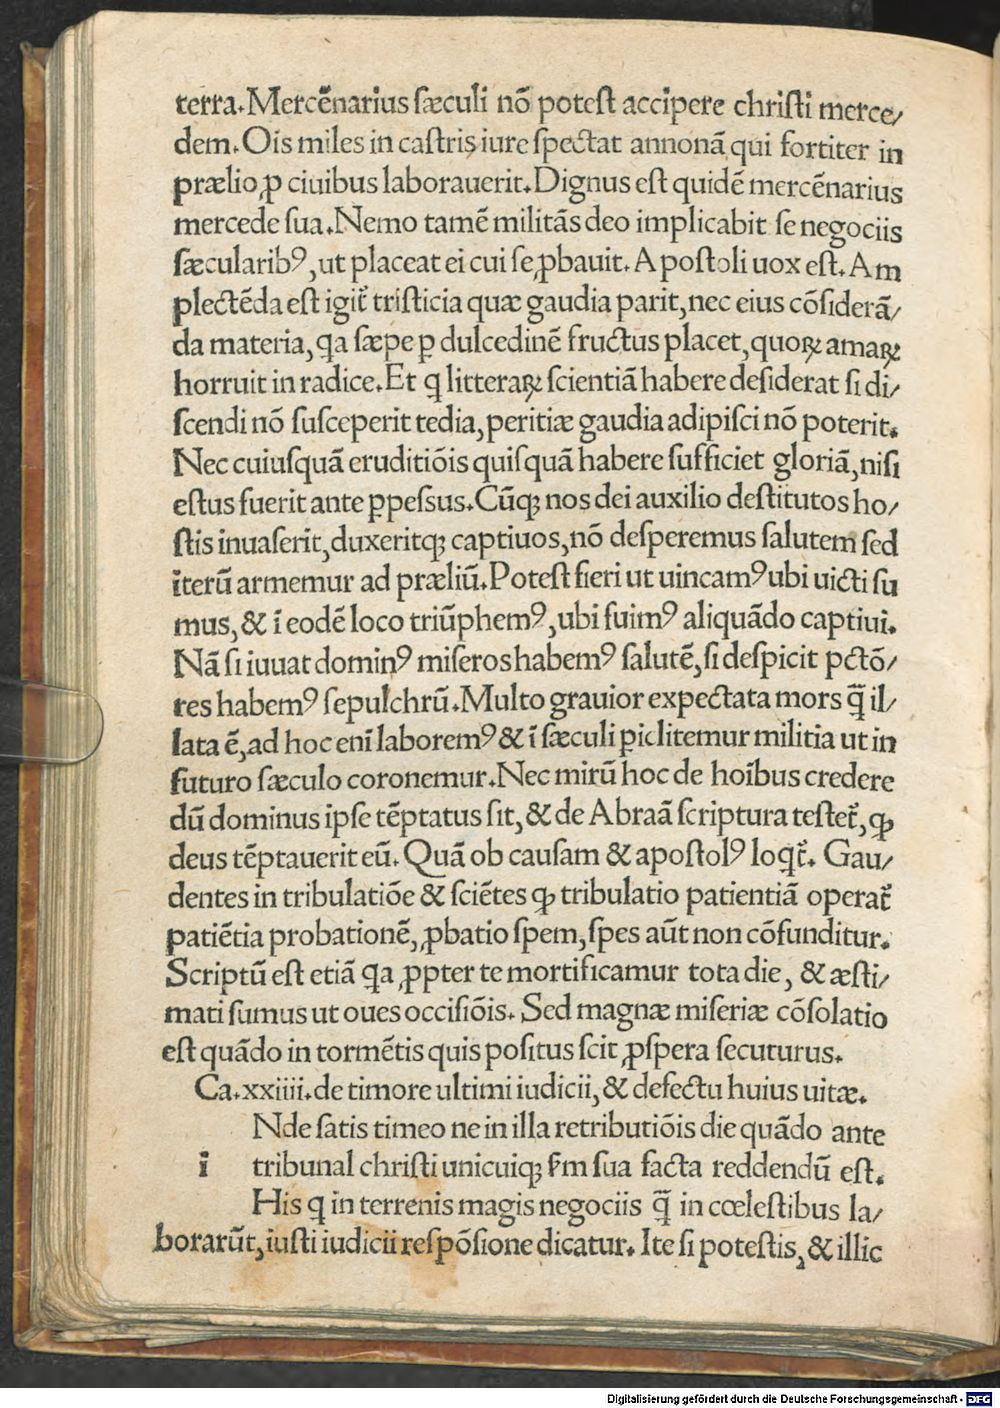 terra.Mercēnarius ſæculi nō poteſt accipere chriſti merce/
dem.Oīs miles in caſtris iure ſpectat annonā qui fortiter in
prælio ꝓ ciuibus laborauerit.Dignus eſt quidē mercēnarius
mercede ſua.Nemo tamē militās deo implicabit ſe negociis
ſæcularibꝰ,ut placeat ei cui ſe ꝓbauit.Apoſtoli uox eſt.Am
plectēda eſt igit̄ triſticia quæ gaudia parit,nec eius cōſiderā/
da materia,qa ſæpe ꝑ dulcedinē fructus placet,quoꝝ amaꝝ
horruit in radice.Et q litteraꝝ ſcientiā habere deſiderat ſi di/
ſcendi nō ſuſceperit tedia,peritiæ gaudia adipiſci nō poterit.
Nec cuiuſquā eruditiōis quiſquā habere ſufficiet gloriā,niſi
eſtus fuerit ante ꝑpeſsus.Cūqꝫ nos dei auxilio deſtitutos ho/
ſtis inuaſerit,duxeritqꝫ captiuos,nō deſperemus ſalutem ſed
īterū armemur ad præliū.Poteſt fieri ut uincamꝰ ubi uicti ſu
mus,& ī eodē loco triūphemꝰ,ubi fuimꝰ aliquādo captiui.
Nā ſi iuuat dominꝰ miſeros habemꝰ ſalutē,ſi deſpicit pctō/
res habemꝰ ſepulchrū.Multo grauior expectata mors q̄ il/
lata ē,ad hoc enī laboremꝰ & ī ſæculi ꝑiclitemur militia ut in
futuro ſæculo coronemur.Nec mirū hoc de hoībus credere
dū dominus ipſe tēptatus ſit,& de Abraā ſcriptura teſtet̄,ꝙ
deus tēptauerit eū. Quā ob cauſam & apoſtolꝰ loqt̄. Gau/
dentes in tribulatiōe & ſciētes ꝙ tribulatio patientiā operat̄
patiētia probationē,ꝓbatio ſpem,ſpes aūt non cōfunditur.
Scriptū eſt etiā qa ꝓpter te mortificamur tota die, & æſti/
mati ſumus ut oues occiſiōis. Sed magnæ miſeriæ cōſolatio
eſt quādo in tormētis quis poſitus ſcit ꝓſpera ſecuturus.
Ca.xxiiii.de timore ultimi iudicii,& defectu huius uitæ.
Nde ſatis timeo ne in illa retributiōis die quādo ante
ī tribunal chriſti unicuiqꝫ ſm̄ ſua facta reddendū eſt.
His q in terrenis magis negociis q̄ in cœleſtibus la/
borarūt,iuſti iudicii reſpōſione dicatur. Ite ſi poteſtis,& illic
Digitalisierung gefördert durch die Deutsche Forschungsgemeinschaft - DFG